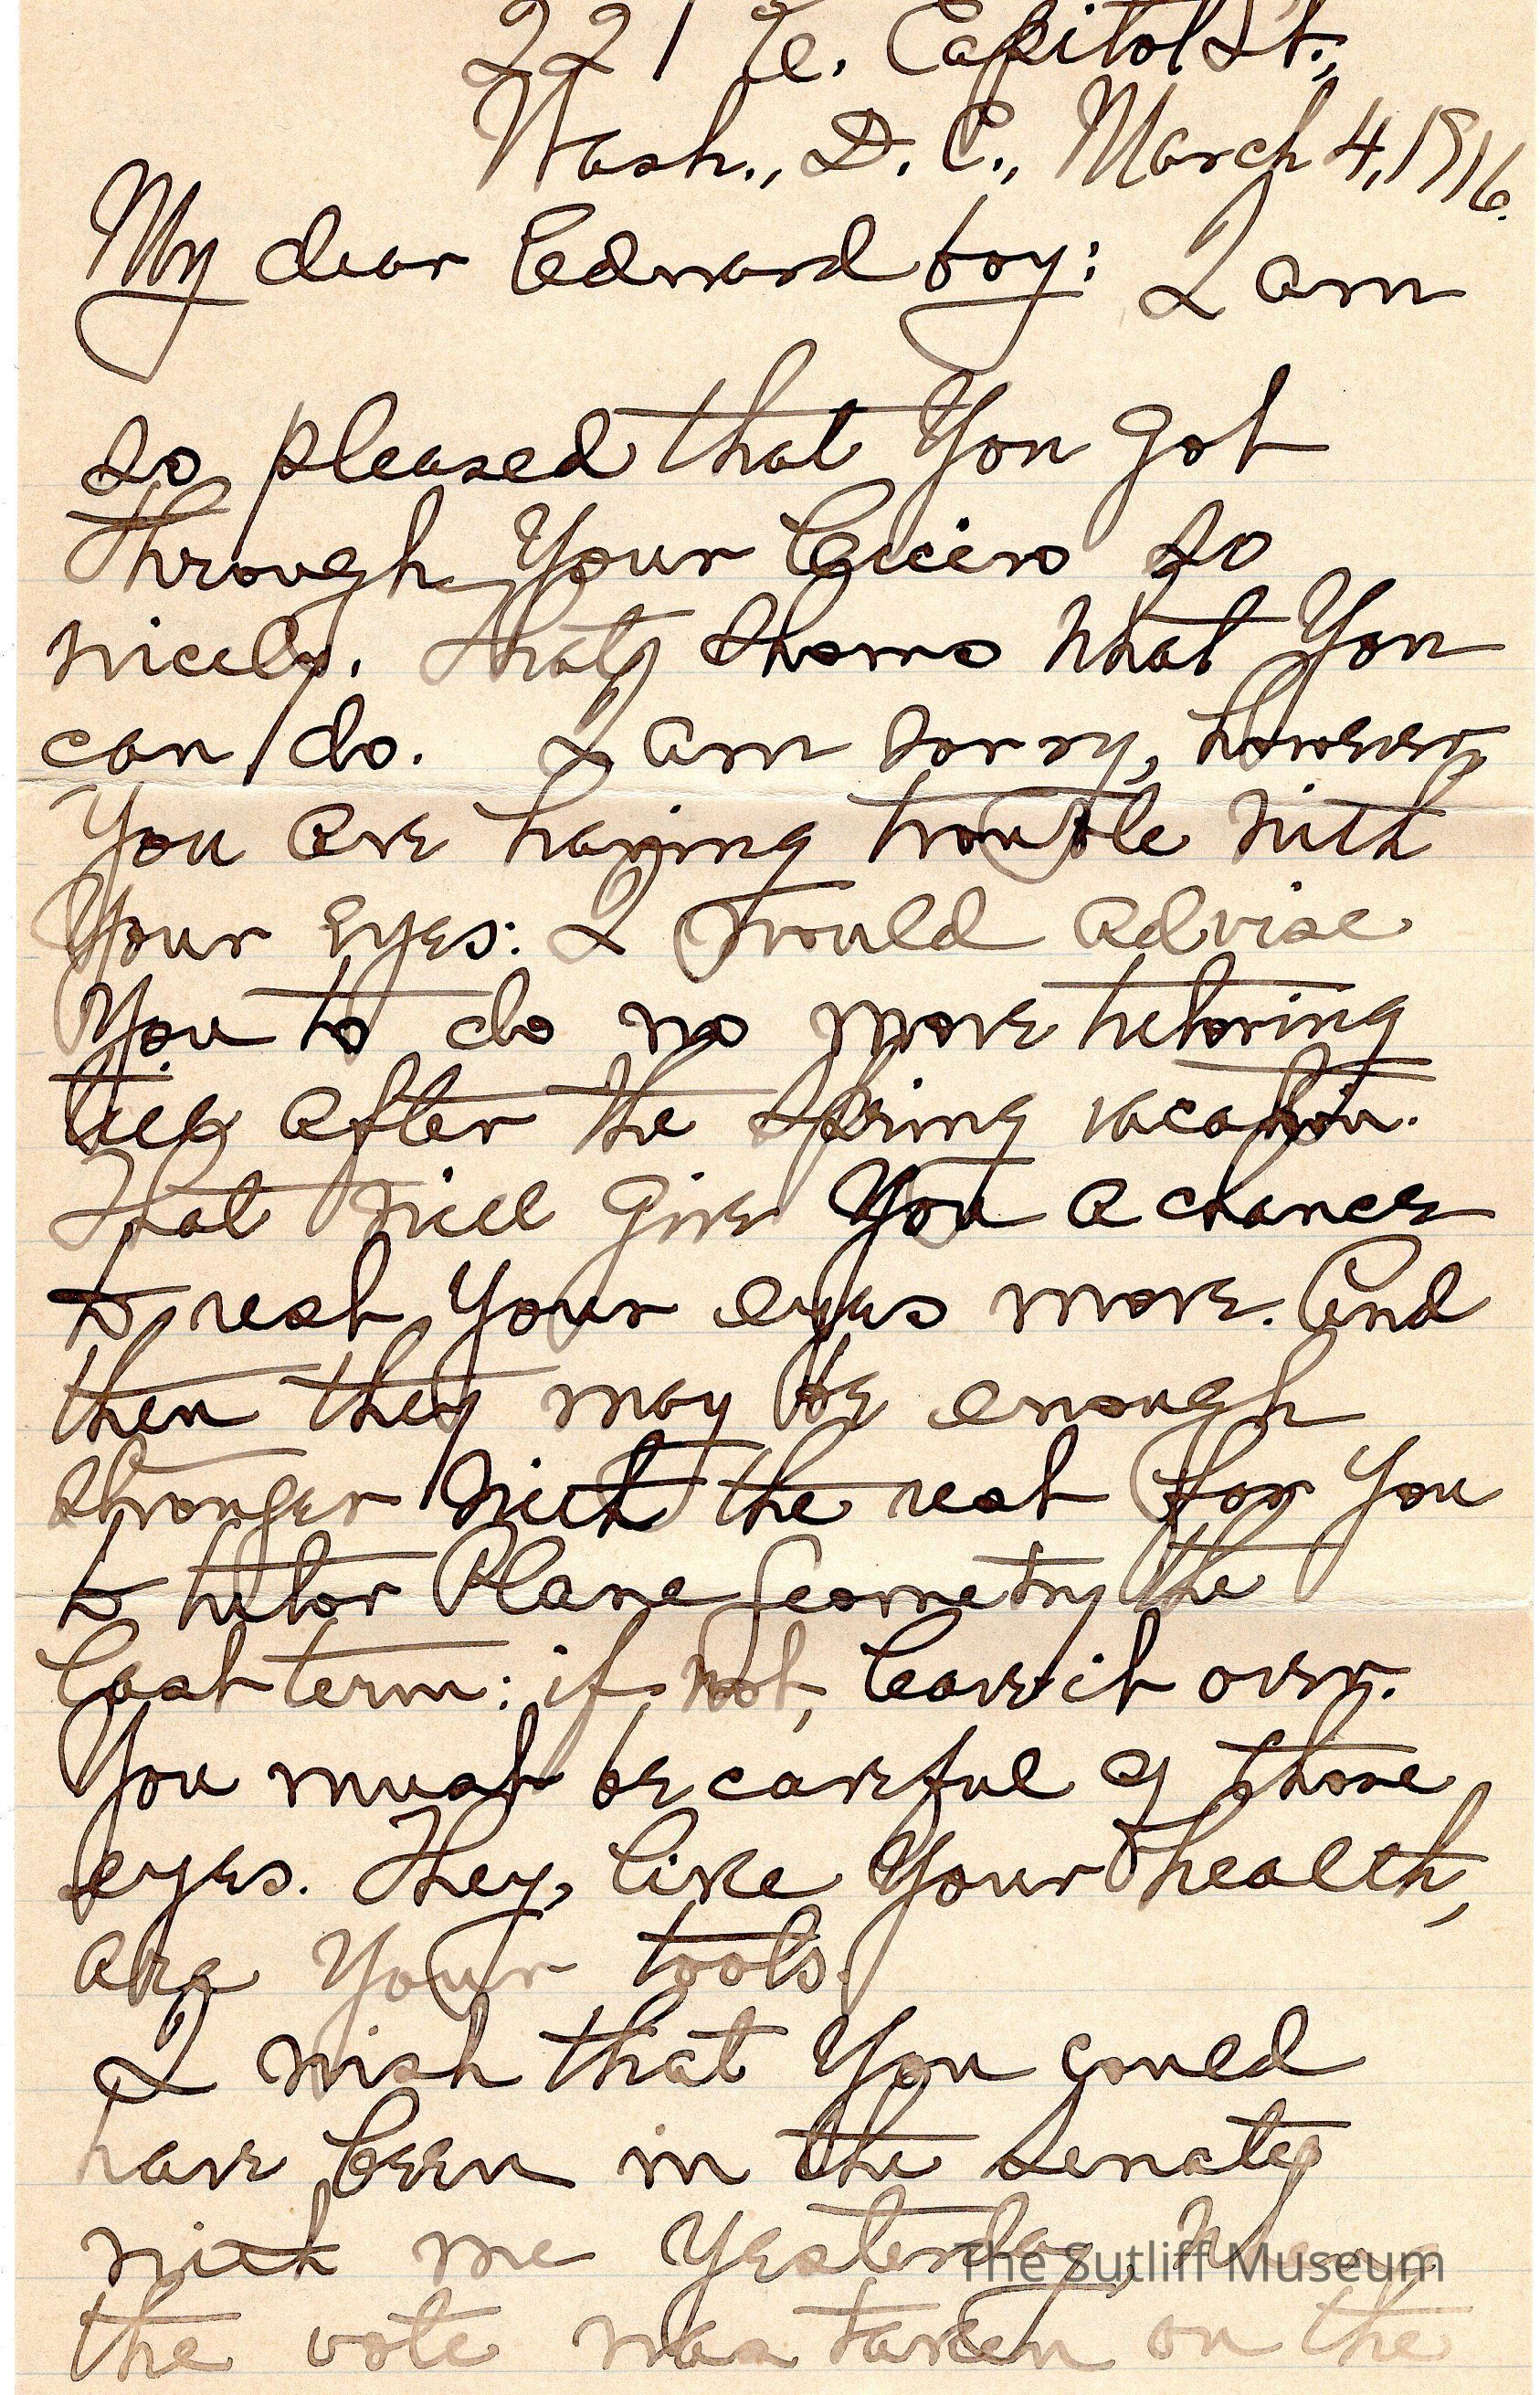 221 E. Capitol St.,
Wash., D. C., March 4, 1916.
My dear Edward boy: I am
so pleased that you got
through your Cicero so
nicely. That shows what you
can do. I am sorry, however,
you are having trouble with
your eyes: I would advise
you to do no more tutoring
till after the spring vacation.
That will give you a chance
to rest your eyes more. And
then they may be enough
stronger with the rest for you
to tutor Plane Geometry the
last term: if not, leave it over.
You must be careful of those
eyes. They, like your health,
are your tools.
I wish that you could
have been in the Senate
with me yesterday, when
the vote was taken on the
The Sutliff Museum